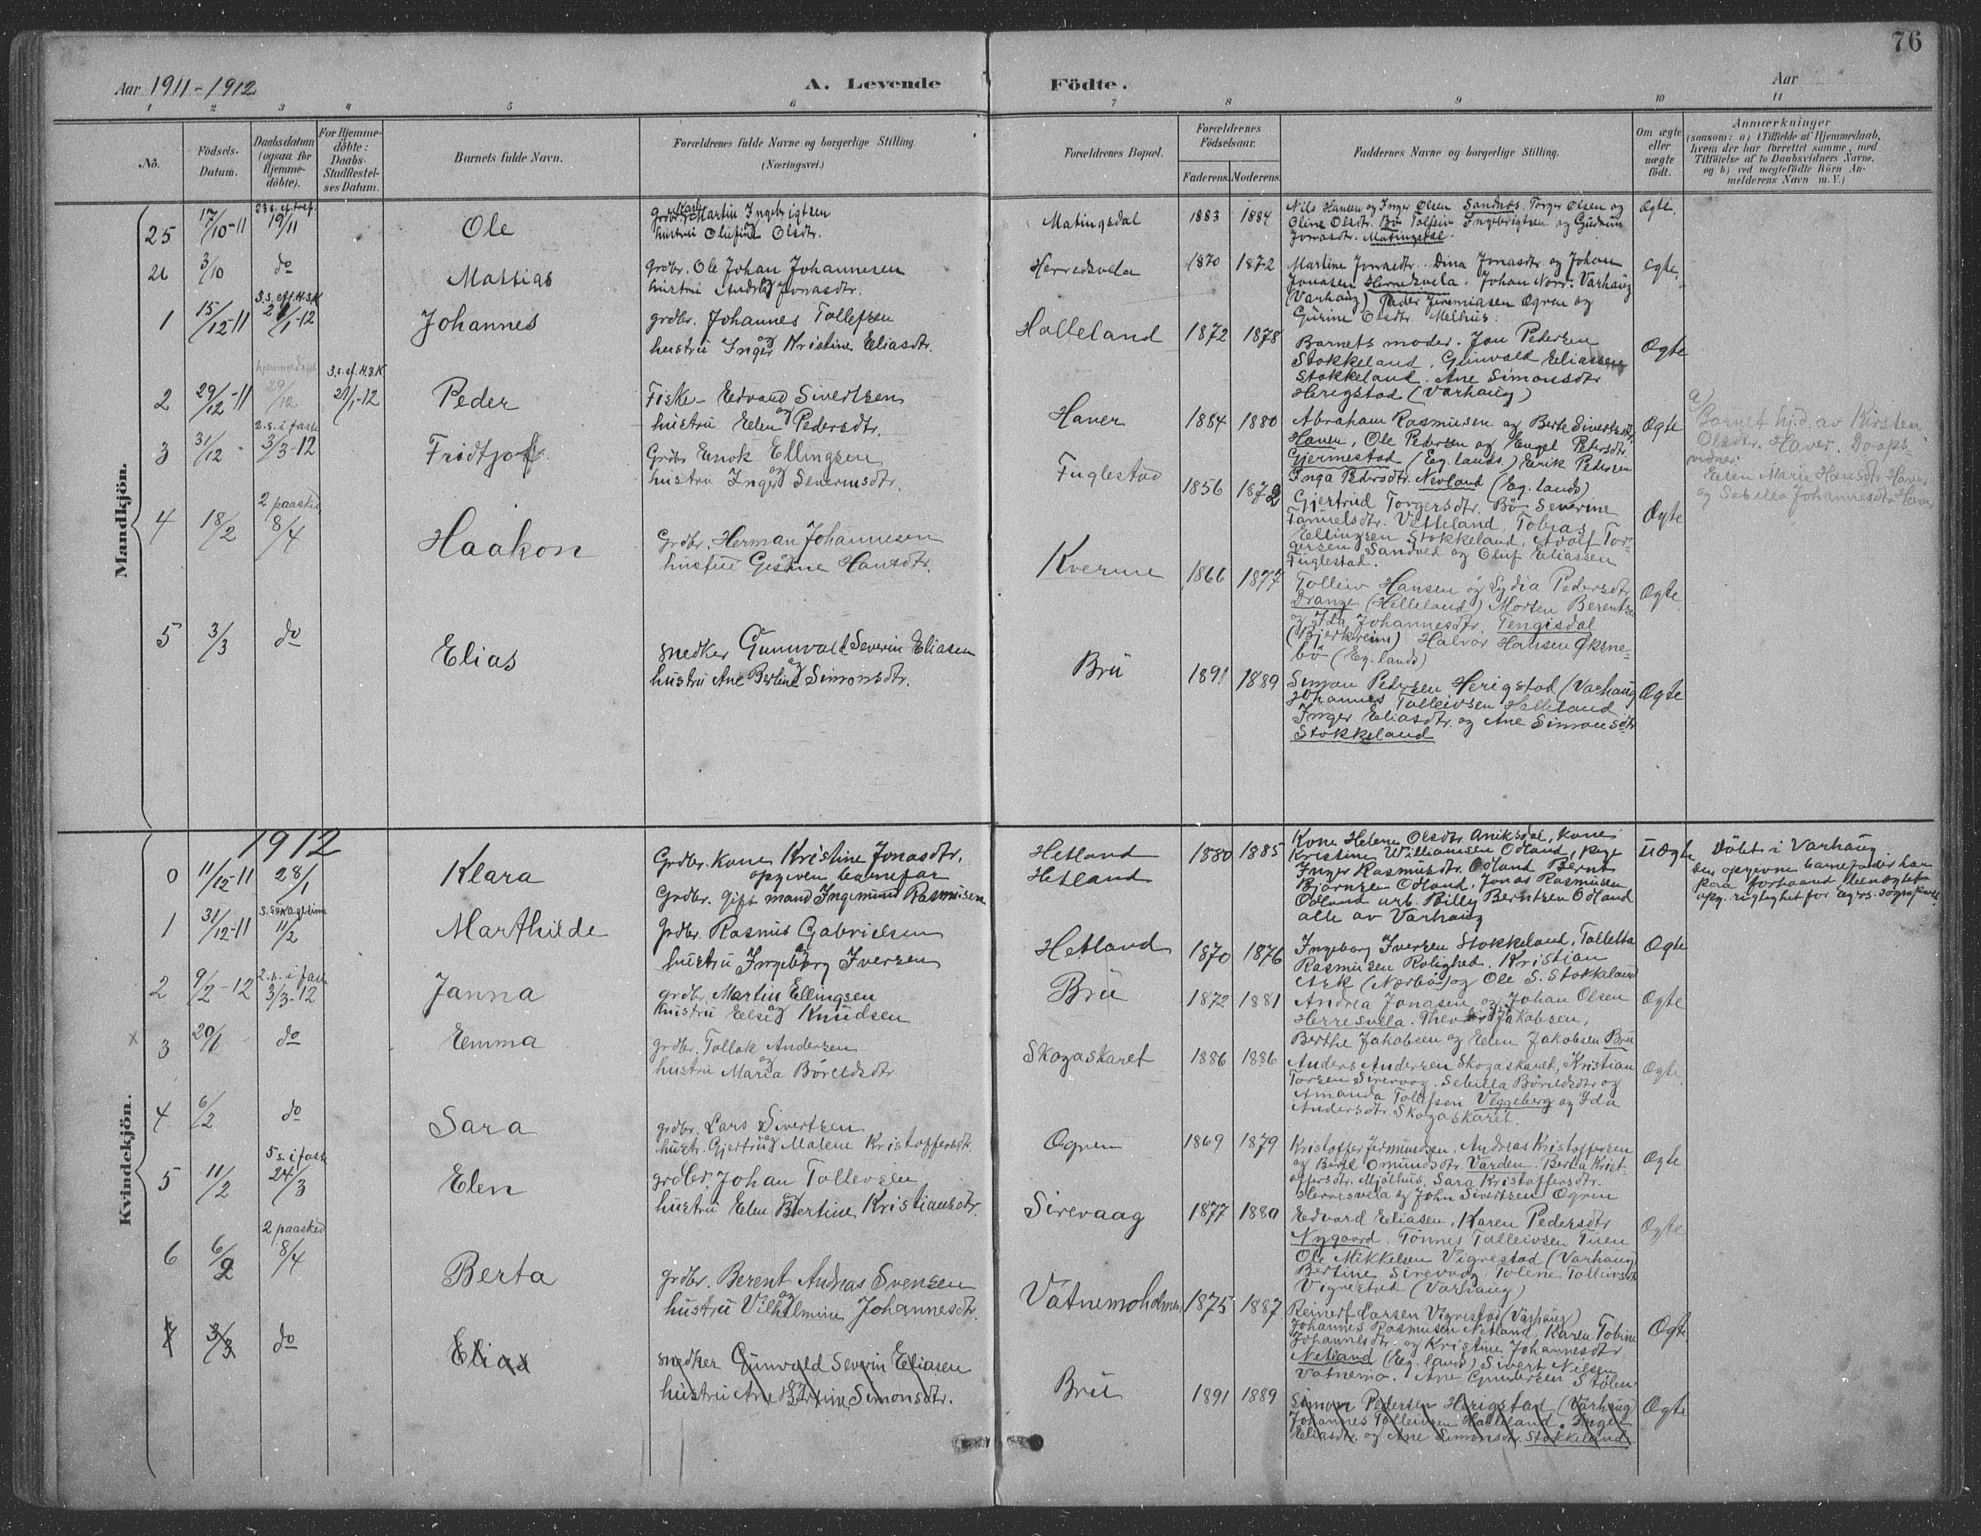 76
Aar 1911-1912
A. Levende
Födte.
Aar
1 2 3 4 5 6 7 8 9 10 11
No.
Födsels-
Datum.
Daabsdatum
(ogsaa for
Hjemme-
döbte).
For Hjemme-
döbte:
Daabs-
Stadfestel-
ses Datum.
Barnets fulde Navn.
Forældrenes fulde Navne og borgerlige Stilling
(Næringsvei.)
Forældrenes Bopæl.
Forældrenes
Födselsaar.
Faderens. Moderens.
Faddernes Navne og borgerlige Stilling.
Om ægte
eller
uægte
født.
Anmærkninger
(saasom: a) i Tilfælde af Hjemmedaab,
hvem der har forrettet samme, med
Tilföielse af to Daabsvidners Navne,
og b) ved uægtefödte Börn An-
melderens Navn m. V.)
Mandkjön.
25 17/10-11 23 s. ef. tref. 19/11
Ole
Grdbr. Karl Martin Ingebrigtsen
hustru Olufine Olsdtr.
Matingsdal
1883 1884
Nils Hansen og Inger Olsen Sandnes. Torger Olsen og
Oline Olsdtr. Bö Tolleiv Ingebrigtsen og Gudrun
Jonasdtr. Matingsdal.
Ægte.
3/10 do
Mattias
Grdbr. Ole Johan Johannesen
hustru Andrea Jonasdtr.
Herredsvela
1870 1872
Martine Jonasdtr. Dina Jonasdtr og Johan
Jonasen Herredsvela. Johan Norr. Varhaug
(Varhaug) Peder Jeremiasen Ogren og
Gurine Olsdtr Melhus.
Ægte.
1 15/12-11 3. s. eft. H.3.K 21/1-12
Johannes
grdbr. Johannes Tollefsen
og
hustru Inger Kristine Eliasdtr.
Helleland
1872 1878
Barnets moder. Jon Pedersen
Stokkeland, Gunvald Eliassen
Stokkeland. Ane Simonsdtr
Herigstad (Varhaug)
Ægte
2 29/12-11 hjemmedøbt 29/12 3. s. ef. H.3.K 21/1-12
Peder
Fisker Edvard Sivertsen
og
hustru Elen Pedersdtr.
Haver
1884 1880
Abraham Rasmussen og Berte Sivertsdtr.
Haver, Ole Pedersen og Engel Petersdtr.
Gjermestad (Eg. lands.) Erik Pedersen
Inga Pedersdtr. Nevland (Eg. lands)
Ægte
a/
Barnet hj.d. av Kirsten
Olsdtr. Haver. Daaps-
vidner:
Elen Marie Hansdtr. Haver
og Sebilla Johannesdtr. Haver
3 31/12 - 2. s. i faste 3/3-12
Fridtjof
Grdbr Enok Ellingsen
og
hustru Inger Severinsdtr.
Fuglestad
1856 1872
Gjertrud Torgersdtr. Bö Severine
Tanuelsdtr. Vetteland, Tobias
Ellingsen Stokkeland, Adolf Tor-
gersen Sandved og Oluf Eliassen
Fuglestad.
Ægte
4 18/2 2 paasked 8/4
Haakon
Grdbr. Herman Johannesen
hustru Gesine Hansdtr.
Kverme
1866 1877
Tolleiv Hansen og Lydia Pedersdtr
Drange (Helleland) Morten Berentsen
og Ida Johannesdtr. Tengisdal
(Bjerkreim) Halvor Hansen Øksne-
bö (Eg. lands)
Ægte.
5 3/3 do
Elias
Snedker Gunnvald Severin Eliasen
og
hustru Ane Bertine Simonsdtr.
Brü
1891 1889
Simon Pedersen Herigstad (Varhaug)
Johannes Tolleivsen Helleland
Inger Eliasdtr. og Ane Simonsdtr
Stokkeland
Ægte
Kvindekjön.
1912
0 11/12-11 28/1
Klara
Grdbr. Kone Kristine Jonasdtr.
opgiven barnefar
Grdbr. Gift mand Ingemund Rasmusen
Hetland
Hetland
1880 1885
Kone Helene Olsdtr Aniksdal, Kone
Kristine Williamsen Ødland, pige
Inger Rasmusdtr. Ødland Bernt
Bjørnsen Ødland, Jonas Rasmusen
Ødland urb. Billy Berntsen Ødland
alle av Varhaug
Uægte
Döbt i Varhaug
Den opgivne barnefader har
paa forhaand benægtet
opg. rigtighet for
1 31/12-11 11/2
Marthilde
Grdbr. Rasmus Gabrielsen
og
hustru Ingeborg Iversen
Hetland
1870 1876
Ingeborg Iversen Stokkeland, Talletta
Rasmusen Rolighed. Kristian
Aek (Nærbø) og Ole S. Stokkeland
Ægte
2 9/2-12 2. s. i faste 3/3-12
Janna
grdbr. Martin Ellingsen
og
hustru Elsie Knudsen
Brü
1872 1881
Andrea Jonasen og Johan Olsen
Herresvela. Theodor Jakobsen,
Berthe Jakobsen og Elen Jakobsen Brü
Ægte
x 3 20/1 do
Emma
grdbr. Tollak Andersen
og
hustru Maria Böreldsdtr
Skogaskaret
1886 1886
Anders Andersen Skogaskaret, Kristian
Torsen Sirevaag. Sebilla Böreldsdtr og
Amanda Tollefsen Veggeberg og Ida
Andersdtr. Skogaskaret.
Ægte.
4 6/2 do
Sara
grdbr. Lars Sivertsen
og
hustr. Gjertrud Malene Kristoffersdtr
Ogren
1869 1879
Kristoffer Jermundsen. Andreas Kristoffersen
og Bertl Omundsdtr. Varden. Berta Krist-
offersdtr. Mjølhus, Sara Kristoffersdtr.
Herresvela og John Sivertsen Ogren
Ægte
5 11/2 5 s. i faste 24/3
Elen
grdbr. Johan Tollevsen
og
hustru Elen Bertine Kristiansdtr.
Sirevaag
1877 1880
Edvard Eliasen, Karen Pedersdtr
Nygaard. Tönnes Tolleivsen Tuen
Ole Mikkelsen Vigrestad (Varhaug)
Bertine Sirevaag Tolene Tollevsdtr
Vigrestad (Varhaug)
Ægte
6 6/2 2 paasked 8/4
Berta
grdbr. Berent Andreas Svensen
og
hustru Vilhelmine Johannesdtr.
Vatnemoholmen
1875 1887
Reinert Larsen Vigrestad (Varhaug)
Johannes Rasmusen Netland, Karen Tobine
Johannesdtr og Kristine Johannesdtr
Netland (Eg. lands) Sivert Nilsen
Vatnemo. Ane Gundersen Stölen
Ægte
7 3/3 do
Elias
snedker Gunvald Severin Eliasen
og
hustru Ane Bertine Simonsdtr.
Brü
1891 1889
Simon Pedersen Herigstad (Varhaug)
Johannes Tolleivsen Helleland. Inger
Eliasdtr. og Ane Simonsdtr. Stokkeland
Ægte